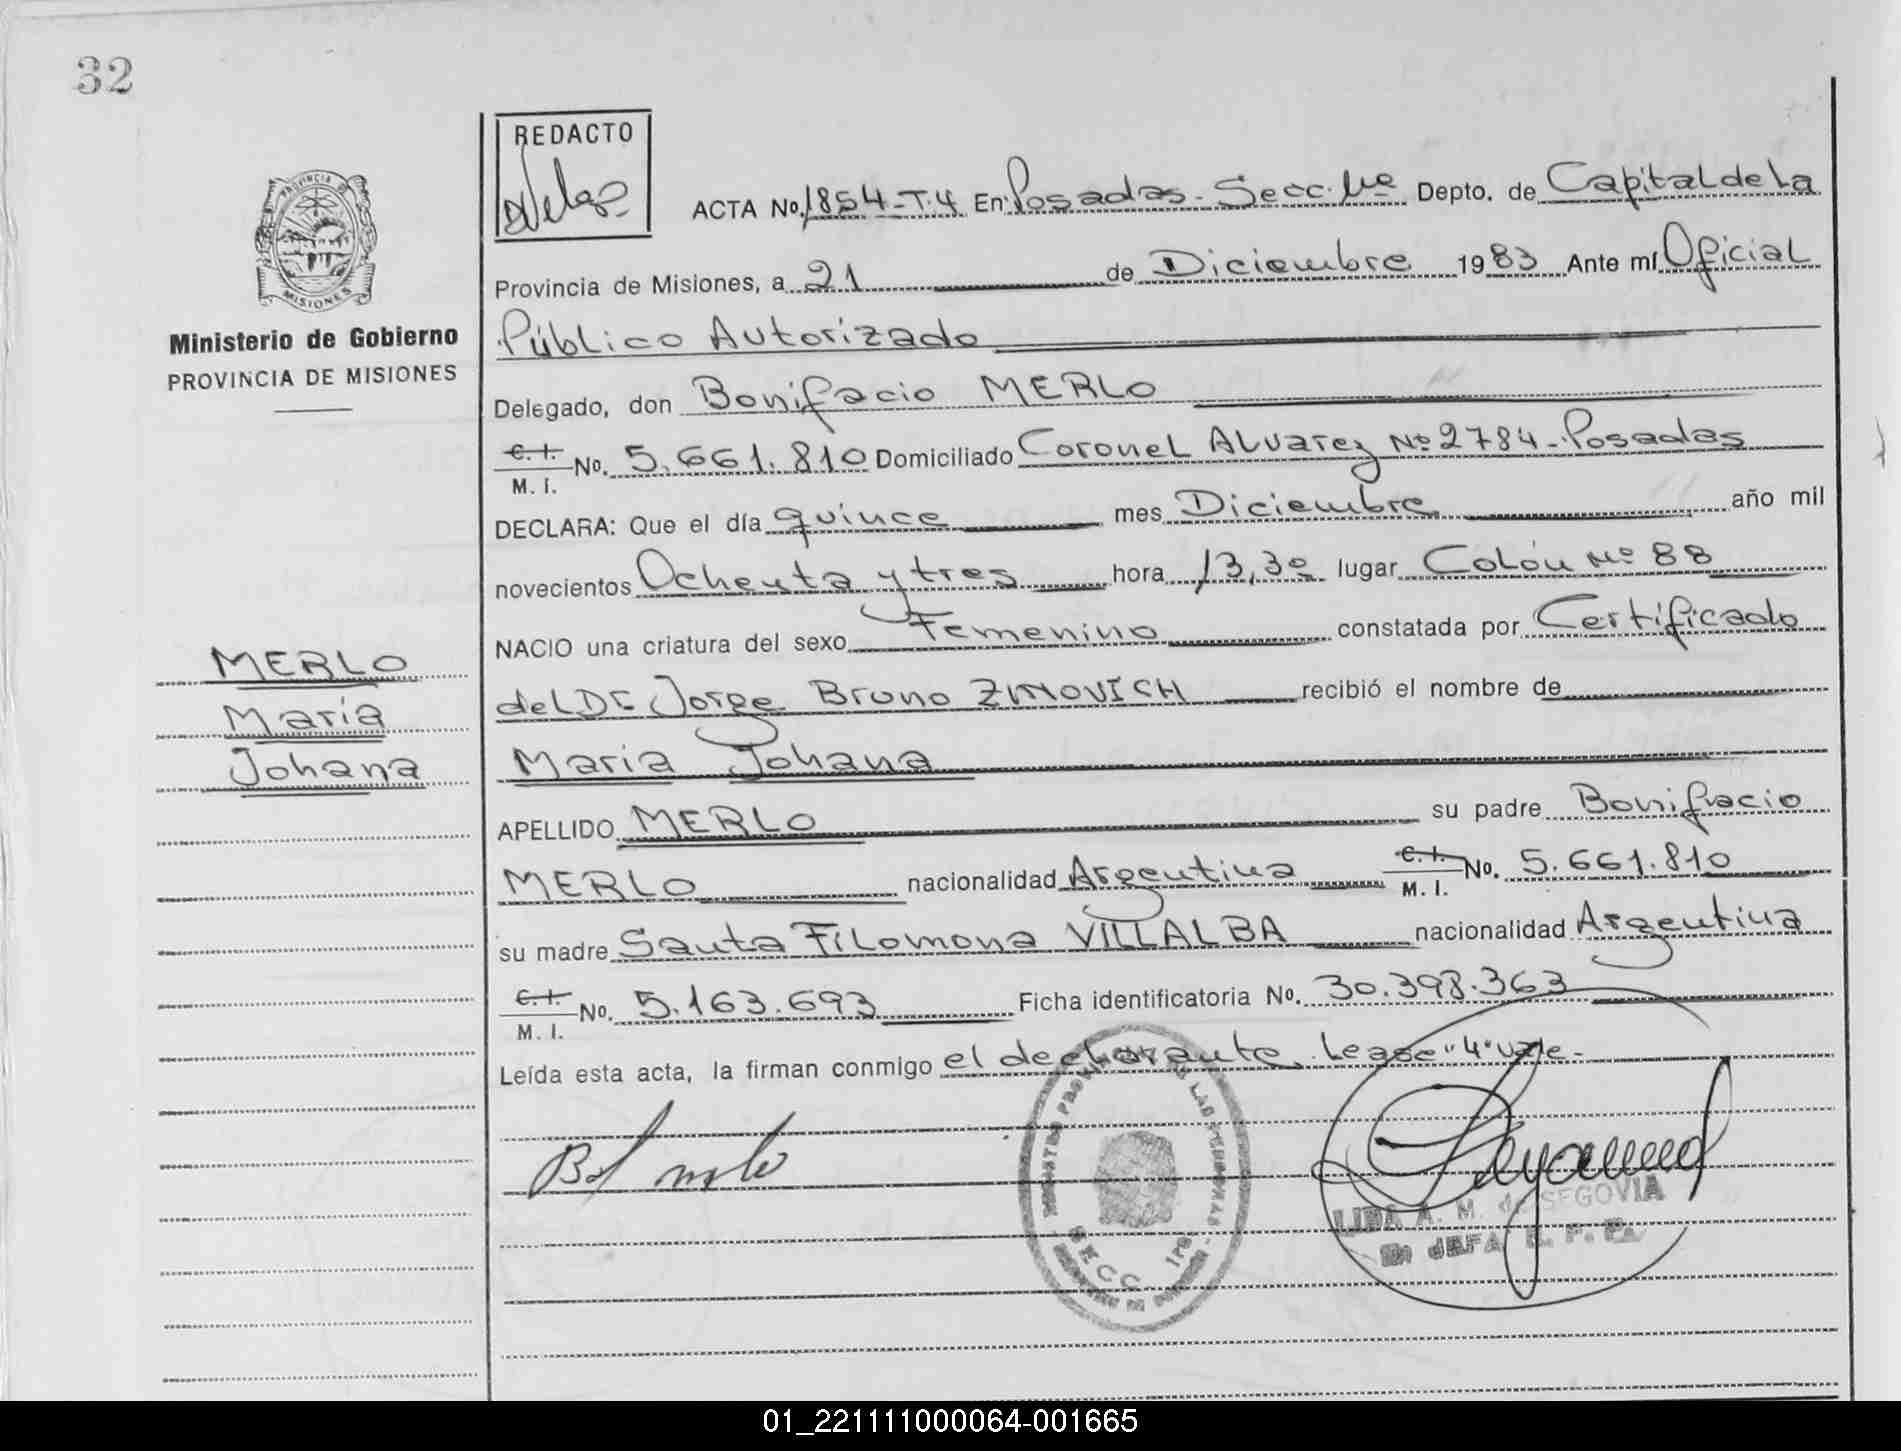 32
REDACTO
ACTA No. 1854-T.4 En Posadas - Secc. 1ra Depto. de Capital de la
Provincia de Misiones, a 21 de Diciembre 1983 Ante mí Oficial
Público Autorizado
Delegado, don Bonifacio MERLO
C. I.
M. I. No. 5.661.810 Domiciliado Coronel Alvarez Nº 2784 - Posadas
DECLARA: Que el día quince mes Diciembre año mil
novecientos Ochenta y tres hora 13,30 lugar Colón Nº 88
NACIO una criatura del sexo Femenino constatada por Certificado
del Dr Jorge Bruno ZMOVICH recibió el nombre de
María Johana
APELLIDO MERLO su padre Bonifacio
MERLO nacionalidad Argentina C. I. M. I. No. 5.661.810
su madre Santa Filomona VILLALBA nacionalidad Argentina
C. I.
M. I. No. 5.163.693 Ficha identificatoria No. 30.398.363
Leída esta acta, la firman conmigo el declarante. Lease "4" vale -
PROVINCIA DE
MISIONES
Ministerio de Gobierno
PROVINCIA DE MISIONES
MERLO
María
Johana
DE LAS PERSONAS
SECC. 1ra
LIDA A. M. de SEGOVIA
JEFA
01_221111000064-001665